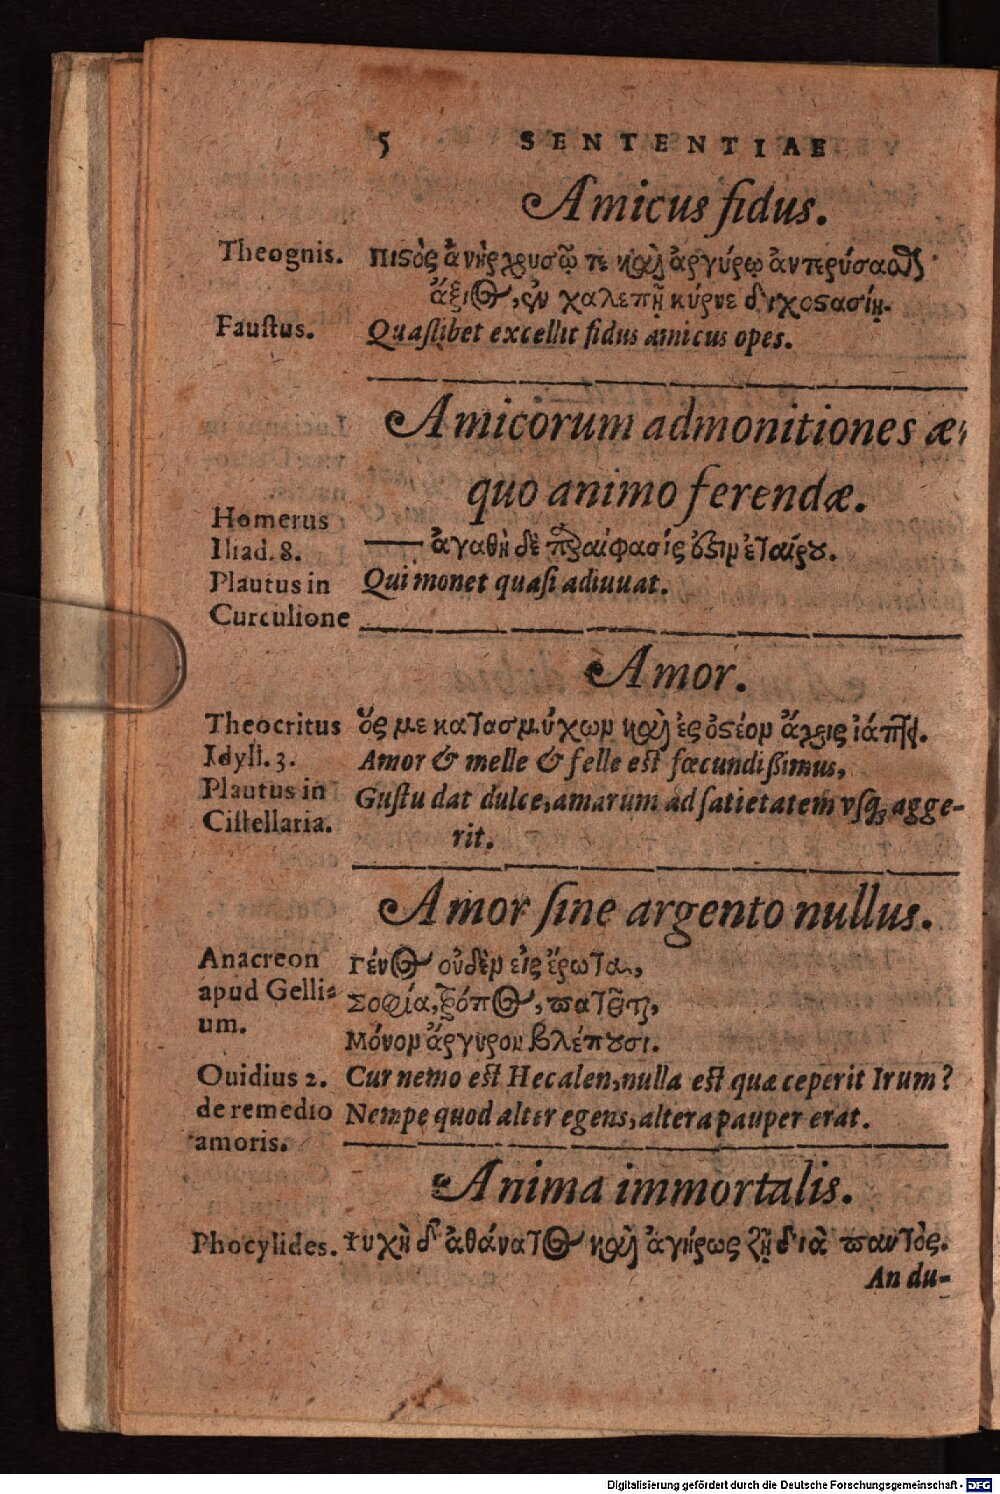 5 SENTENTIAE
Amicus fidus.
Theognis. πιστὸς ἀνὴρ χρυσῷ τε καὶ ἀργύρῳ ἀντερύσασθαι
ἄξιος, ἐν χαλεπῇ κύρνε διχοστασίῃ.
Faustus. Quaslibet excellit fidus amicus opes.
Amicorum admonitiones æ-
quo animo ferendæ.
Homerus
Iliad. 8. ἀγαθὴ δὲ παραίφασίς ἐστιν ἑταίρου.
Plautus in Qui monet quasi adiuuat.
Curculione
Amor.
Theocritus ὅς με κατασμύχων καὶ ἐς ὀστέον ἄχρις ἰάπτει.
Idyll. 3. Amor & melle & felle est fœcundissimus,
Plautus in Gustu dat dulce, amarum ad satietatem vsq; agge-
Cistellaria. rit.
Amor sine argento nullus.
Anacreon Γένος οὐδὲν εἰς ἔρωτα,
apud Gelli- Σοφία, τρόπος, πατεῖται,
um. Μόνον ἄργυρον βλέπουσι.
Ouidius 2. Cur nemo est Hecalen, nulla est quæ ceperit Irum?
de remedio Nempe quod alter egens, altera pauper erat.
amoris.
Anima immortalis.
Phocylides. ψυχὴ δ' ἀθάνατος καὶ ἀγήρως ζῇ διὰ παντὸς.
An du-
Digitalisierung gefördert durch die Deutsche Forschungsgemeinschaft - DFG